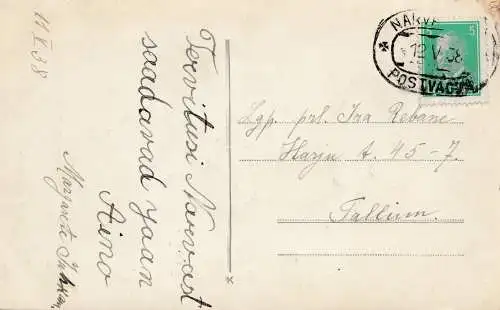 11 V. 38
Tervitusi Narvast
saadavad Jaan
Aino
Margarete
Lgp. prl. Ira Rebane
Harju t. 45-7.
Tallinn.
5
12 V 38
POSTVAG